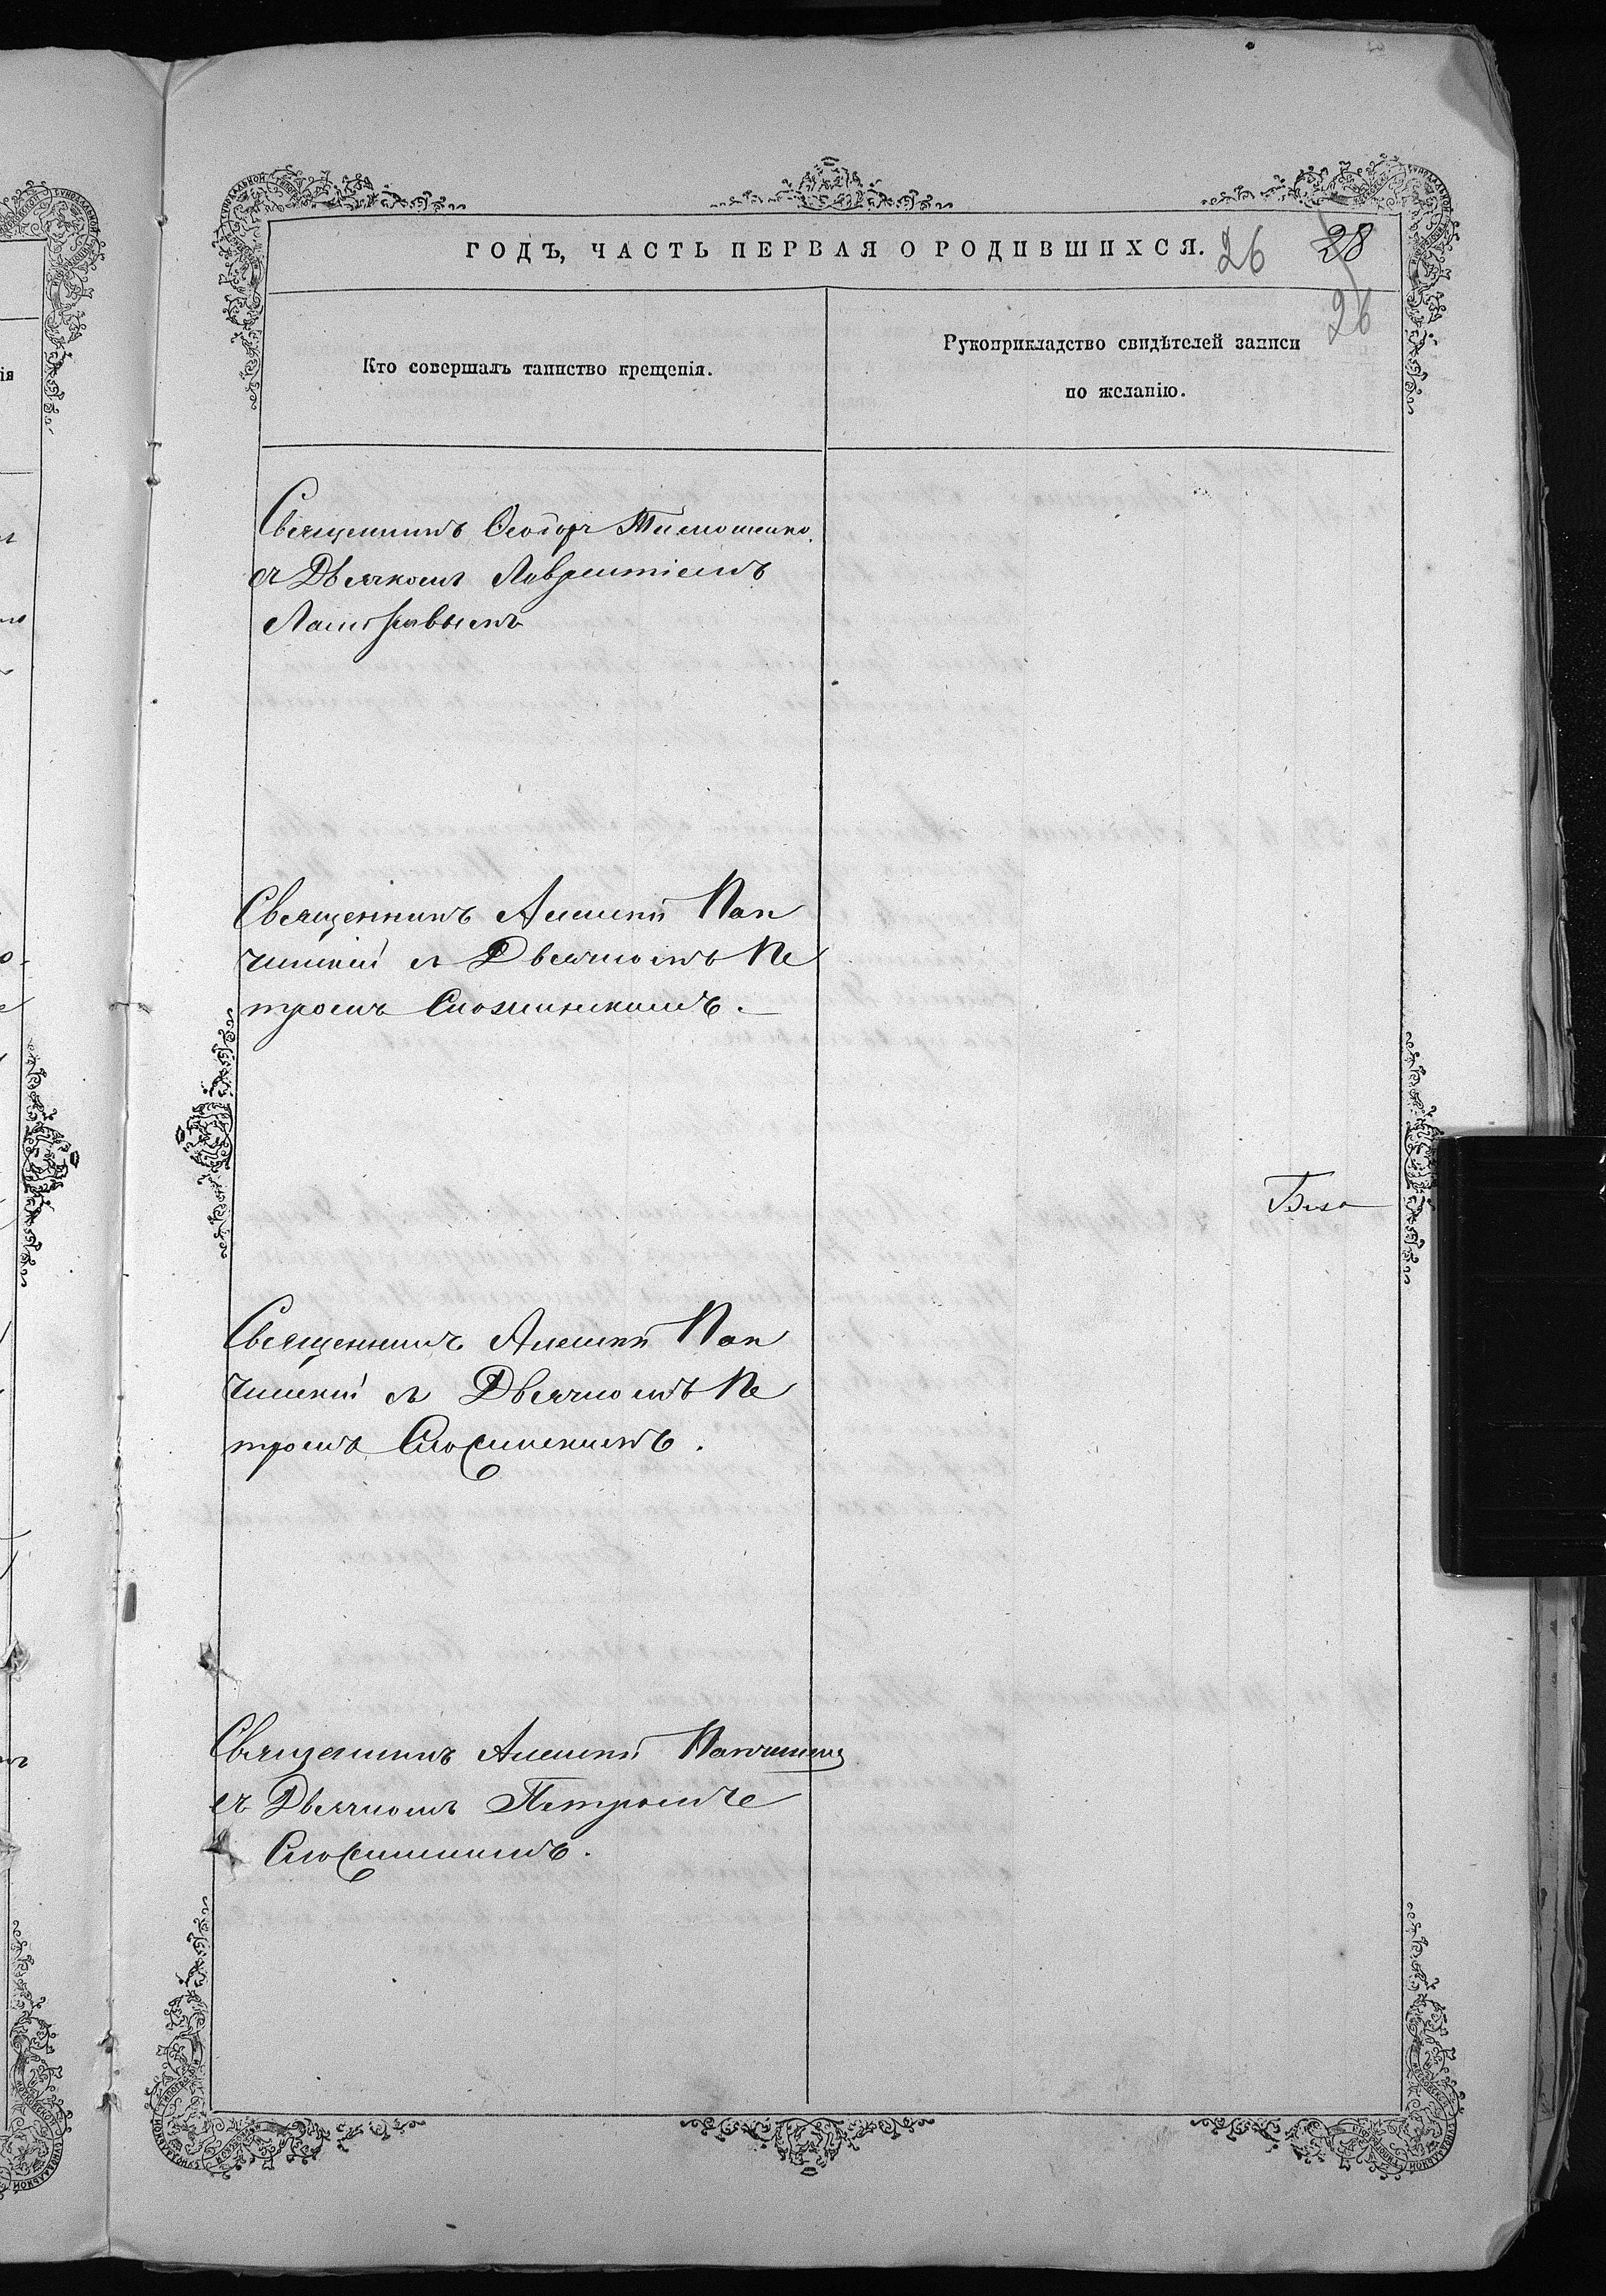 ГОДЪ, ЧАСТЬ ПЕРВАЯ О РОДИВШИХСЯ. 26 28
26
Кто совершалъ таинство крещенія.
Рукоприкладство свидѣтелей записи
по желанію.
Священникъ Ѳеодоръ Тимошенко
съ Дьячкомъ Лаврентіемъ
Священникъ Алексѣй Пан
чинскій съ Дьячкомъ Пе
тромъ Сложинскимъ.
Священникъ Алексѣй Пан
чинскій съ Дьячкомъ Пе
тромъ Сложинскимъ.
Священникъ Алексѣй Панчинскій
съ Дьячкомъ Петромъ
Сложинскимъ.